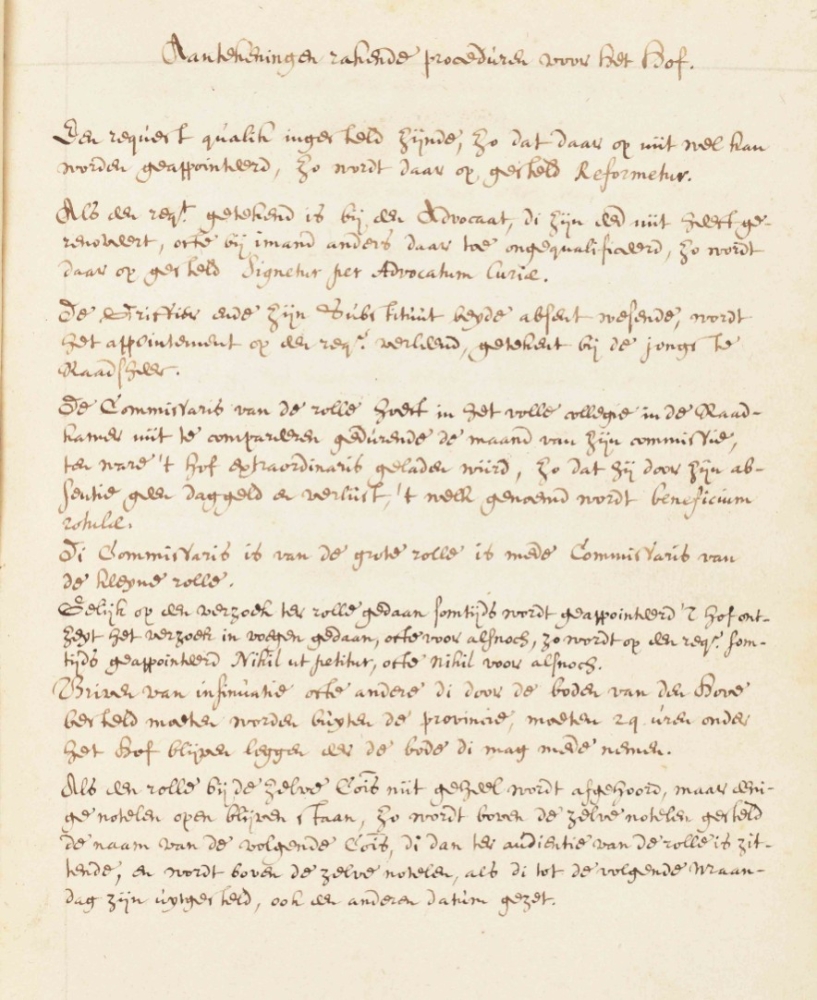 Aantekeningen rakende procedúren voor het Hof.
Een request qualik ingesteld zijnde, zo dat daar op niit wel kan
worden geappointeerd, zo wordt daar op gesteld Reformetur.
Als een reqt. getekend is bij een Advocaat, di zijn eed niit heeft ge-
renoveert, ofte bij imand anders daar toe ongequalificeerd, zo wordt
daar op gesteld Signetur per Advocatum Curiæ.
De Griffier ende zijn Súbstitúút beyde absent wesende, wordt
het appointement op een reqt. verleend, getekent bij de jongste
Raadsheer.
De Commissaris van de rolle hoeft in het volle collegie in de Raad-
kamer niit te compareren gedúrende de maand van zijn commissie,
ten ware 't hof extraordinaris geladen wiird, zo dat hij door zijn ab-
sentie geen daggeld en verliist, 't welk genoemd wordt beneficium
rotulæ.
Di Commissaris is van de grote rolle is mede Commissaris van
de kleyne rolle.
Gelijk op een verzoek ter rolle gedaan somtijds wordt geappointeerd 't hof ont-
zeyt het verzoek in voegen gedaan, ofte voor alsnoch, zo wordt op een reqt. som-
tijds geappointeerd Nihil ut petitur, ofte nihil voor alsnoch.
Briven van insinúatie ofte andere di door de boden van den Hove
besteld moeten worden búyten de provincie, moeten 24 úren onder
het Hof blijven leggen eer de bode di mag mede nemen.
Als een rolle bij de zelve Cois niit geheel wordt afgehoord, maar eeni-
ge notelen open blijven staan, zo wordt boven de zelve notelen gesteld
de naam van de volgende Cois, di dan ter aúdientie van de rolle is zit-
tende, en wordt boven de zelve notelen, als di tot de volgende Maan-
dag zijn úytgesteld, ook een anderen datúm gezet.